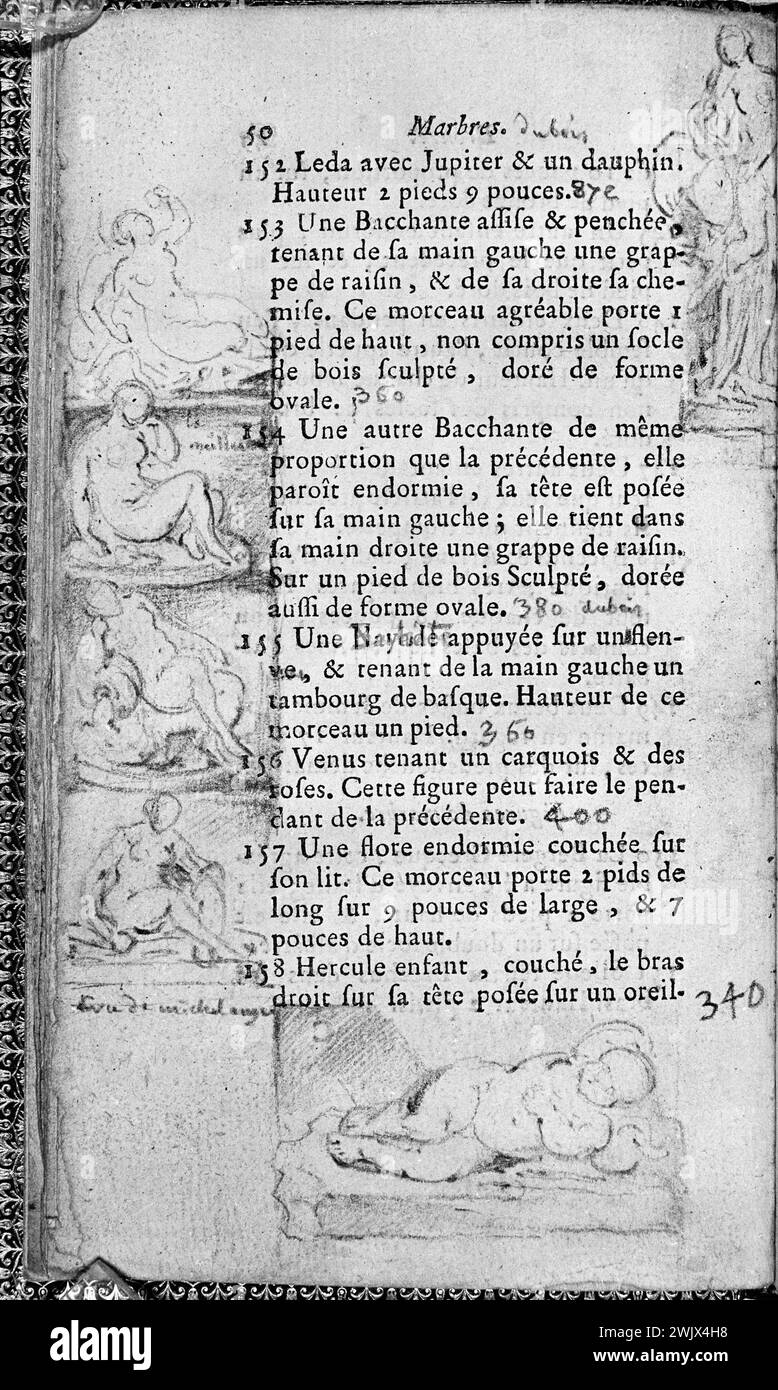 50 Marbres. dubois
152 Leda avec Jupiter & un dauphin.
Hauteur 2 pieds 9 pouces. 872
153 Une Bacchante aſſiſe & penchée,
tenant de ſa main gauche une grap-
pe de raiſin, & de ſa droite ſa che-
miſe. Ce morceau agréable porte 1
pied de haut, non compris un ſocle
de bois ſculpté, doré de forme
ovale. 360
154 Une autre Bacchante de même
proportion que la précédente, elle
paroît endormie, ſa tête eſt poſée
ſur ſa main gauche; elle tient dans
ſa main droite une grappe de raiſin.
Sur un pied de bois Sculpté, dorée
auſſi de forme ovale. 380 dubois
155 Une appuyée ſur un fleu-
ve, & tenant de la main gauche un
tambourg de baſque. Hauteur de ce
morceau un pied. 360
156 Venus tenant un carquois & des
roſes. Cette figure peut faire le pen-
dant de la précédente. 400
157 Une flore endormie couchée ſur
ſon lit. Ce morceau porte 2 pids de
long ſur 9 pouces de large, & 7
pouces de haut.
158 Hercule enfant, couché, le bras
droit ſur ſa tête poſée ſur un oreil- 340
de michel ange
alamy
Image ID: 2WJX4H8
www.alamy.com